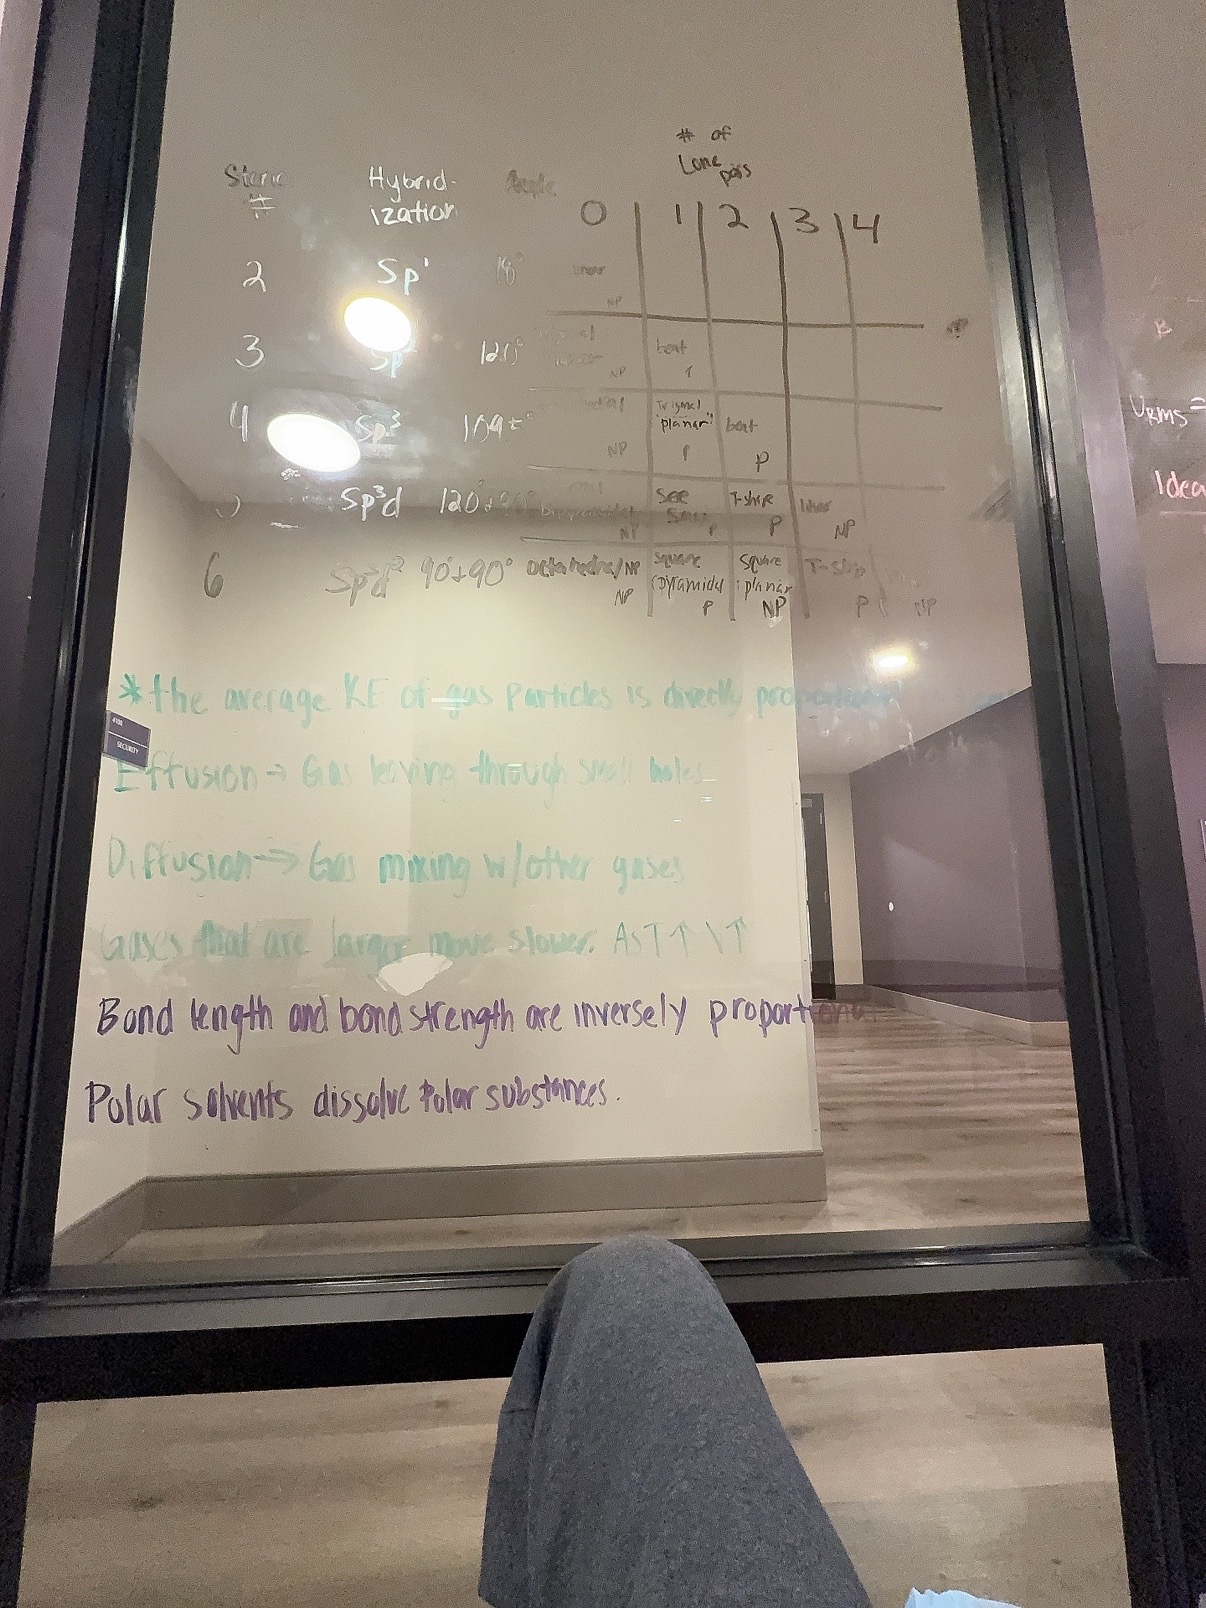 # of
Lone pairs
Steric Hybrid- Angle
# ization
0 1 2 3 4
2 Sp¹ 18°
linear
NP
3 Sp 120°
bent
NP
4 Sp³ 109
Trigonal
"planar" bent
NP P P
Sp³d 120°+90°
See T-shape linear
Saw P P NP
NP
6 Sp³d² 90°+90° Octahedral/NP Square Square T-shap
pyramidal planar
NP P NP P NP
*the average KE of gas particles is directly proportional
4104
SECURITY
Effusion → Gas leaving through small holes
Diffusion → Gas mixing w/other gases
Gases that are larger move slower. As T↑ \↑
Bond length and bond strength are inversely proportional
Polar solvents dissolve Polar substances.
NP
B
URMS =
Idea